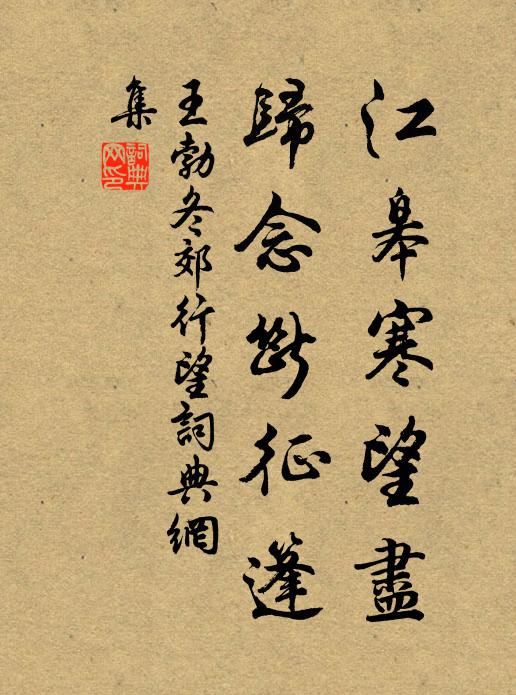 江皋寒望盡
歸念斷征蓬
王勃冬郊行望詞典網
集
詞典網印